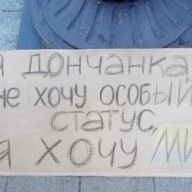 Я ДОНЧАНКА
НЕ ХОЧУ ОСОБЫЙ
СТАТУС,
Я ХОЧУ